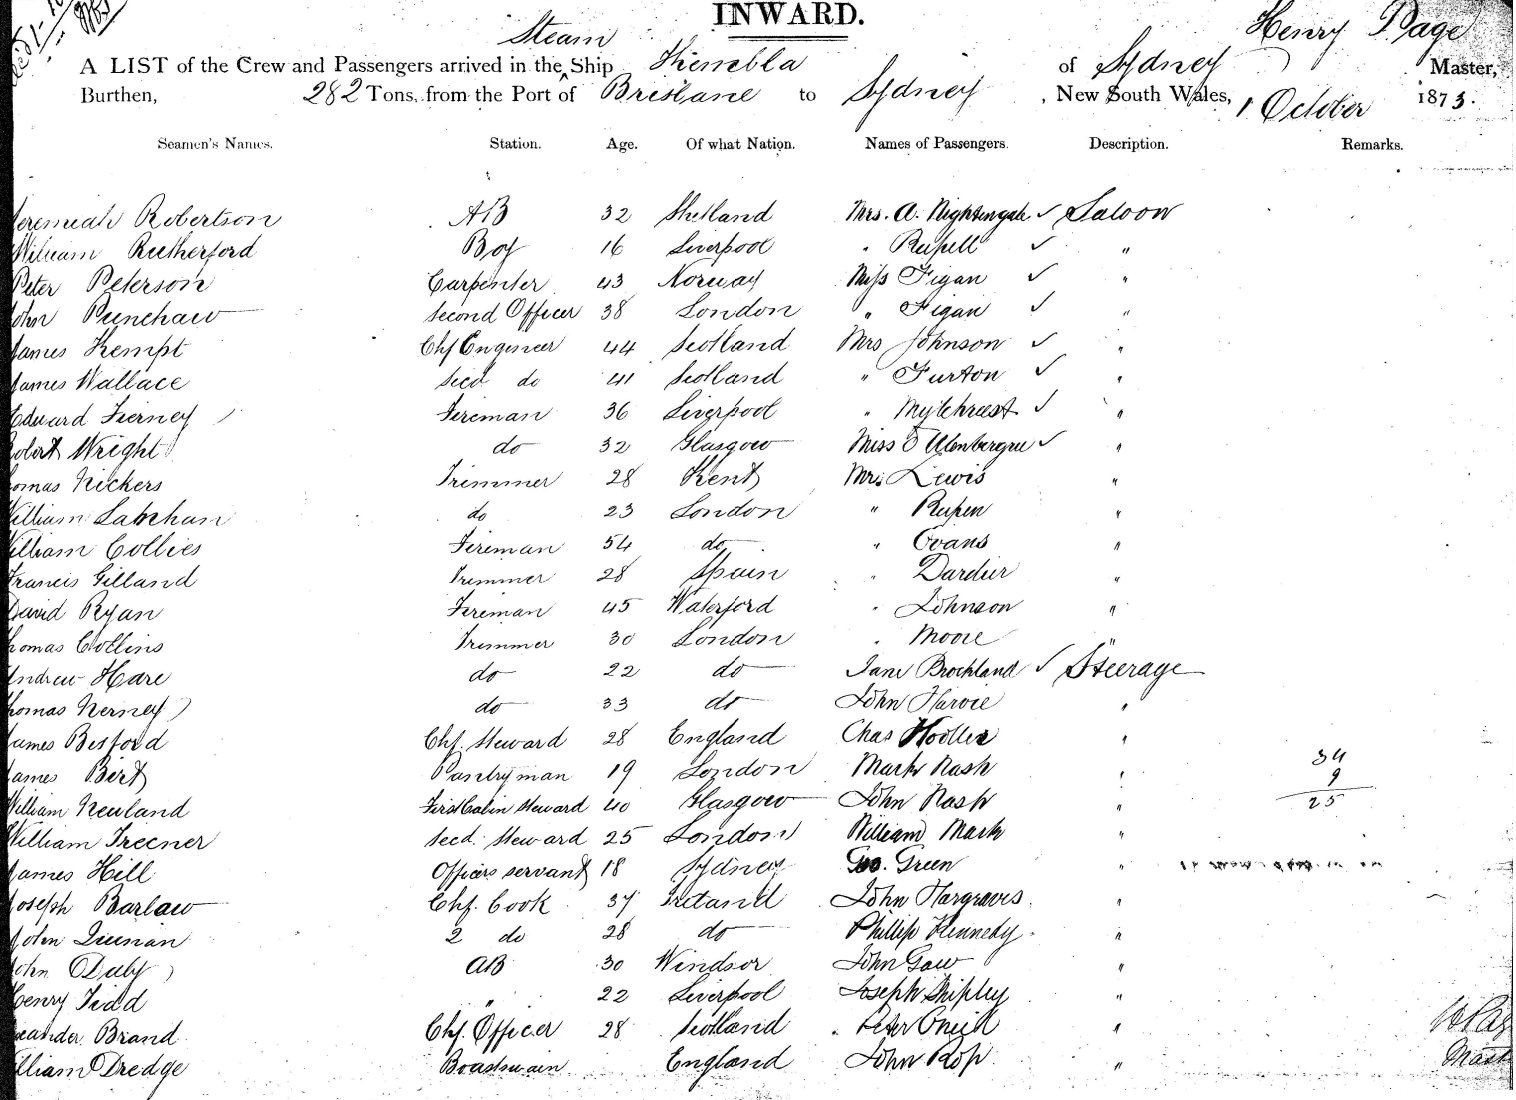 INWARD.
Steam
Henry Page
A LIST of the Crew and Passengers arrived in the ^ Ship Kembla of Sydney Master,
Burthen, 282 Tons, from the Port of Brisbane to Sydney, New South Wales, 1 October 1873.
Seamen's Names. Station. Age. Of what Nation. Names of Passengers. Description. Remarks.
Jeremiah Robertson AB 32 Shetland Mrs. A. Nightingale ✓ Saloon
William Rutherford Boy 16 Liverpool " Russell ✓ "
Peter Peterson Carpenter 43 Norway Miss Figan ✓ "
John Punchaw Second Officer 38 London " Figan ✓ "
James Kempt Chf Engineer 44 Scotland Mrs Johnson ✓ "
James Wallace Secd do 41 Scotland " Furton ✓ "
Edward Tierney Fireman 36 Liverpool " Mylchreest ✓ "
Robert Wright do 32 Glasgow Miss ✓ "
Thomas Nickers Trimmer 28 Kent Mr. Lewis "
William do 23 London " "
William Collies Fireman 54 do " Evans "
Francis Gilland Trimmer 28 Spain " Dardier "
David Ryan Fireman 45 Waterford " Johnson "
Thomas Collins Trimmer 30 London " Moore "
Andrew Hare do 22 do Jane Brockland ✓ Steerage
Thomas Nerney do 33 do John Harvie "
James Besford Chf. Steward 28 England Chas Hodler "
James Birt Pantryman 19 London Mark Nash " 34
9
William Newland First Cabin Steward 40 Glasgow John Nash " 25
William Treener Secd. Steward 25 London William Mark "
James Hill Officers servant 18 Sydney Geo. Green "
Joseph Barlow Chf. Cook 37 Ireland John Hargraves "
John Quinan 2 do 28 do Phillip Kennedy "
John Duly AB 30 Windsor John Gaw "
Henry Tidd " 22 Liverpool Joseph Shipley "
Brand Chf. Officer 28 Scotland Peter Oneill "
William Dredge Boatswain England John Ross "
H Pag
Mast